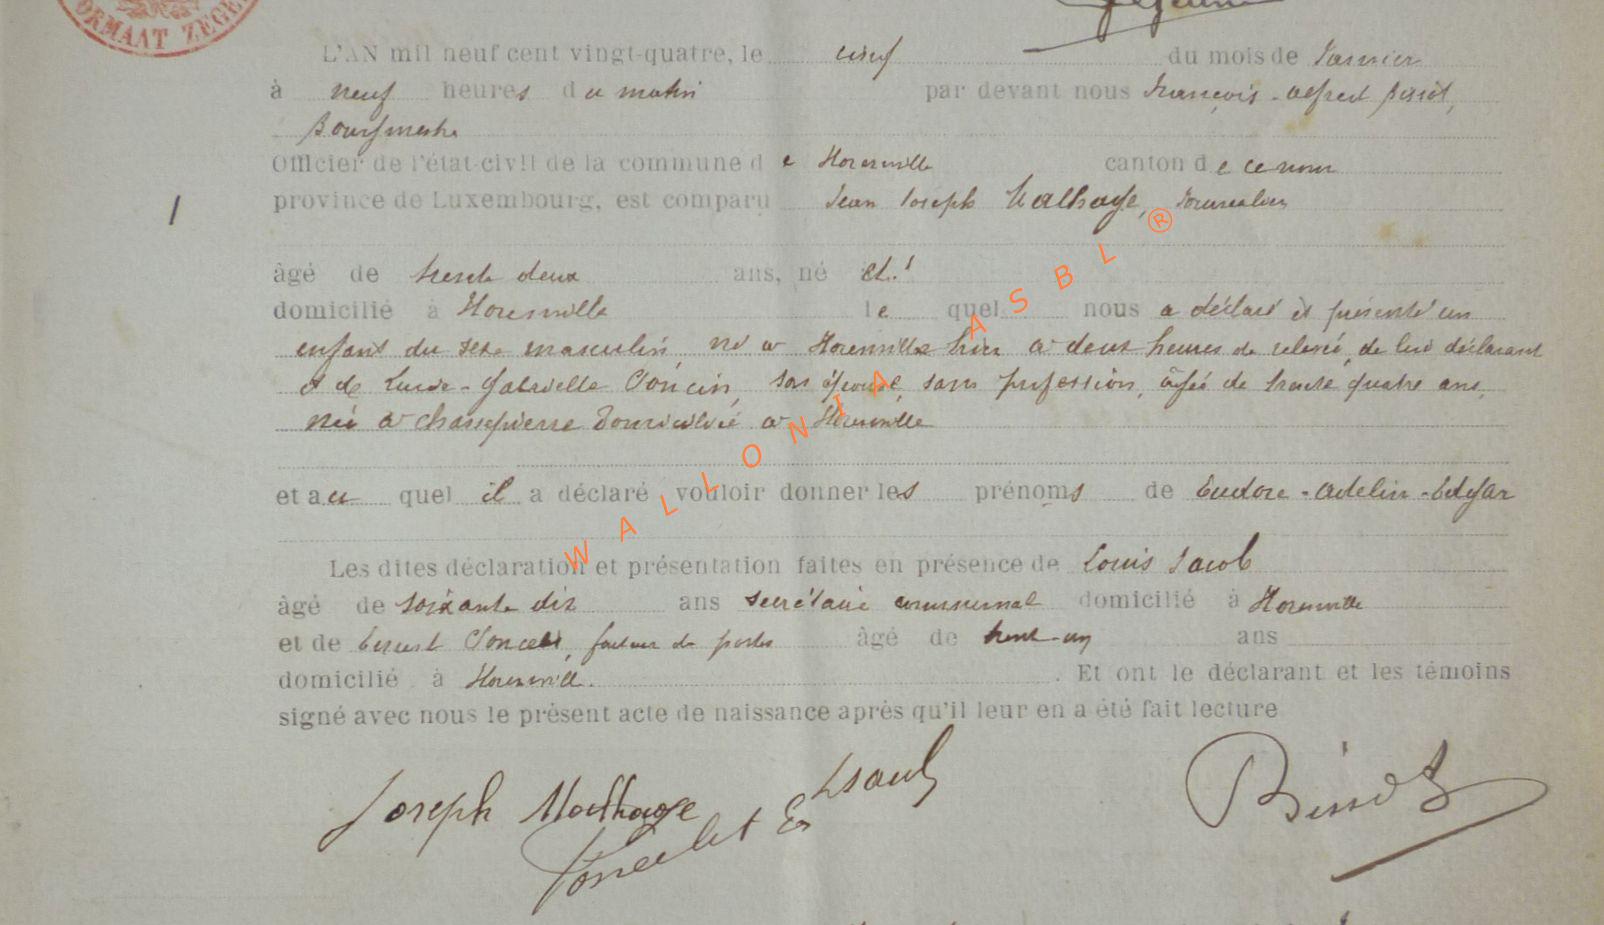 ORMAAT ZEGE
L'AN mil neuf cent vingt-quatre, le cinq du mois de Janvier
à neuf heures du matin par devant nous François-Alfred
Bourgmestre
Officier de l'état-civil de la commune de canton de ce nom
province de Luxembourg, est comparu Jean Joseph Malhage, Journalier
1
âgé de trente deux ans, né
domicilié à le quel nous a déclaré et présenté un
enfant du sexe masculin, né à hier à deux heures de relevée, de lui déclarant
et de Gabrielle son épouse, sans profession, âgée de trente quatre ans,
née à Chassepierre domiciliée à
et au quel il a déclaré vouloir donner les prénoms de Eudore-Adelin-Edgar
Les dites déclaration et présentation faites en présence de Louis Jacob
âgé de soixante dix ans secrétaire communal domicilié à
et de Ernest Poncelet, facteur de postes âgé de trente-un ans
domicilié à . Et ont le déclarant et les témoins
signé avec nous le présent acte de naissance après qu'il leur en a été fait lecture
Joseph Malhage
Poncelet E
WALLONIA ASBL ®